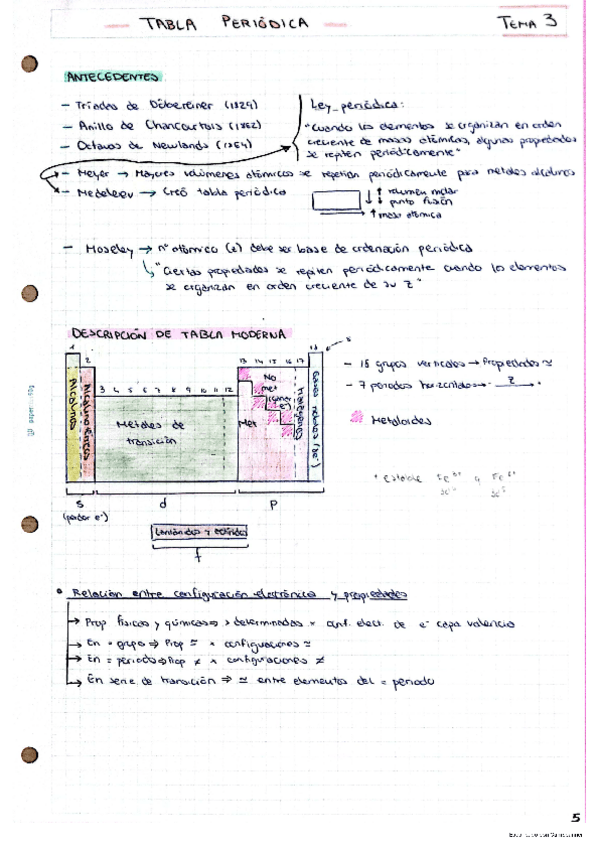 TABLA PERIÓDICA
TEMA 3
ANTECEDENTES
- Tríadas de Döbereiner (1829)
- Anillo de Chancourtois (1862)
- Octavas de Newlands (1864)
Ley periódica:
"Cuando los elementos se organizan en orden
creciente de masas atómicas, algunas propiedades
se repiten periódicamente"
- Meyer → Mayores volúmenes atómicos se repetían periódicamente para metales alcalinos
- Medeleev → Creó tabla periódica
↑ volumen molar
↓ punto fusión
→ masa atómica
- Moseley → nº atómico (z) debe ser base de ordenación periódica
"Ciertas propiedades se repiten periódicamente cuando los elementos
se organizan en orden creciente de su Z"
DESCRIPCIÓN DE TABLA MODERNA
1
2
3 4 5 6 7 8 9 10 11 12
13 14 15 16 17
18
s
ALCALINOS
ALCALINOTÉRREOS
Metales de
transición
No
met
(ganar
e⁻)
Met
Halógenos
Gases nobles
- 18 grupos verticales → Propiedades ≃
- 7 periodos horizontales
Z
Metaloides
s
(perder e⁻)
d
p
Lantánidos y
f
• Relación entre configuración electrónica y propiedades
→ Prop físicas y químicas ⇒ determinadas × conf. elect. de e⁻ capa valencia
→ En = grupo ⇒ Prop ≃ × configuraciones ≃
→ En = periodo ⇒ Prop ≠ × configuraciones ≠
→ En serie de transición ⇒ ≃ entre elementos del = periodo
5